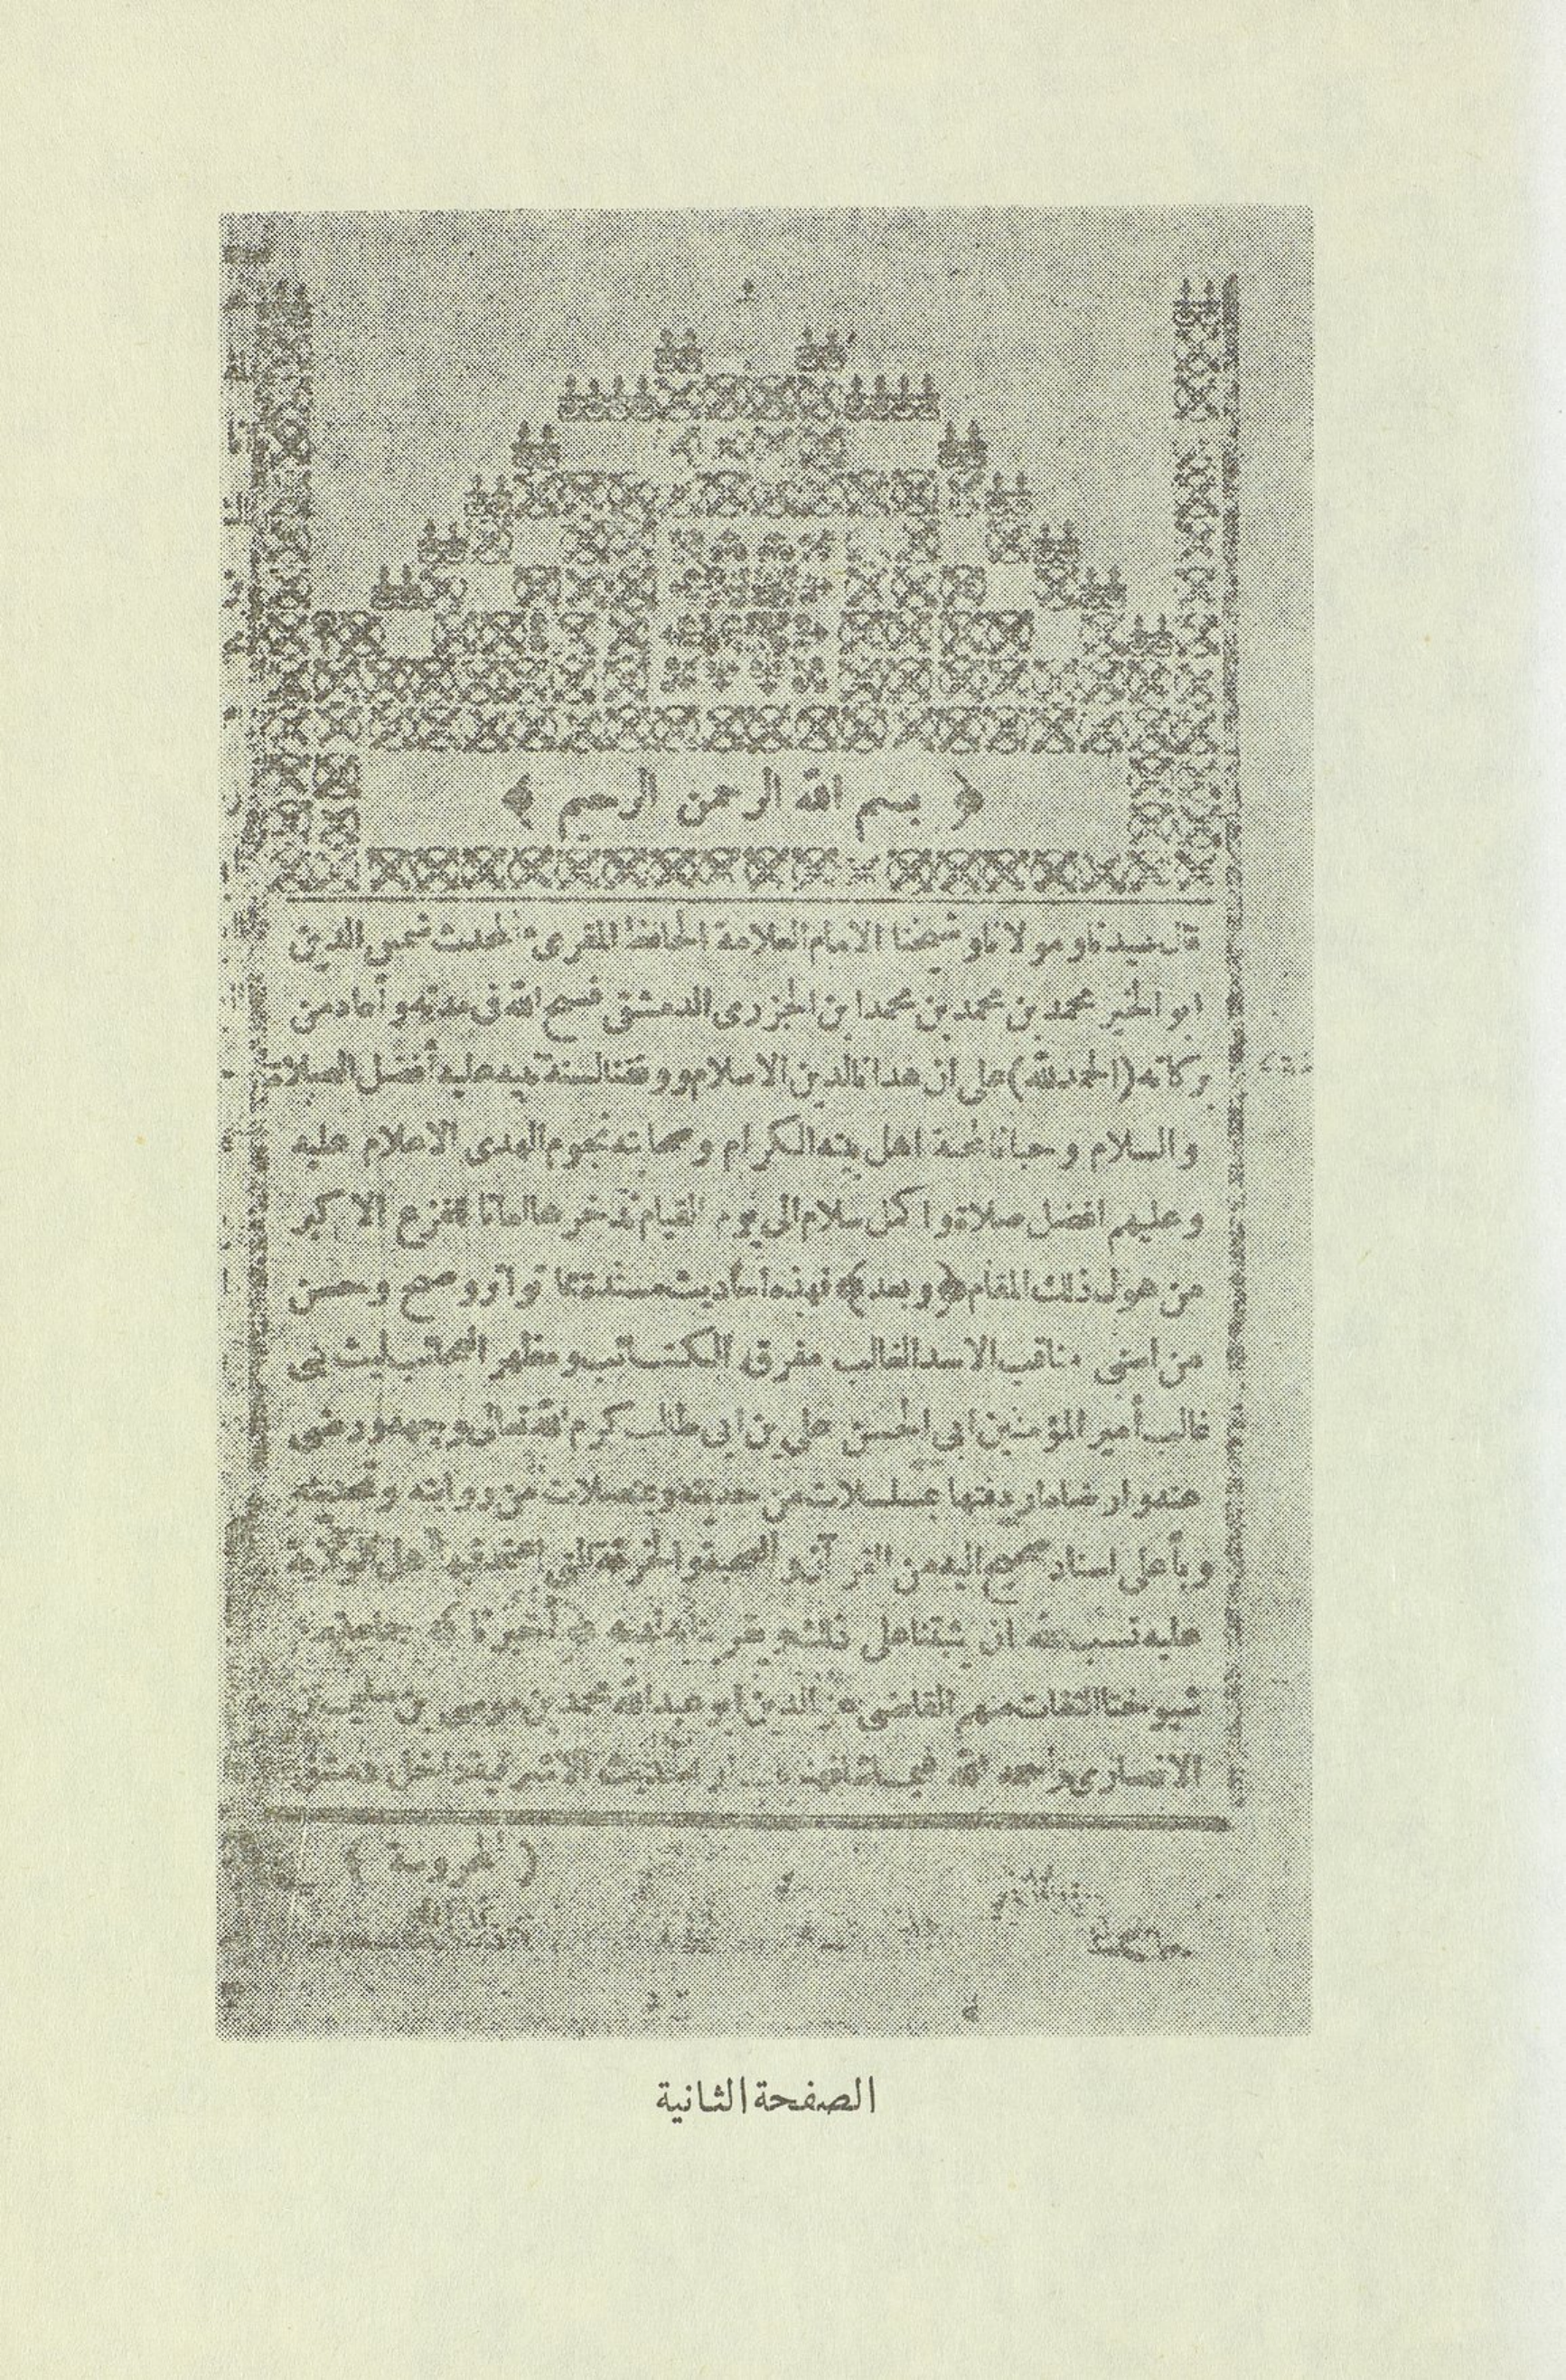 ﴿ بسم الله الرحمن الرحيم ﴾
قال سيدنا ومولانا وشيخنا الامام العلامة الحافظ المقرىء المحدث شمس الدين
ابو الخير محمد بن محمد بن محمد ابن الجزرى الدمشقى فسح الله فى مدته وأعاد من
بركاته (الحمد لله) على ان هدانا لدين الاسلام ووفقنا لسنة نبيه عليه أفضل الصلاة
والسلام وحبانا محبة اهل بيته الكرام وصحابته نجوم الهدى الاعلام عليه
وعليهم افضل صلاة واكمل سلام الى يوم القيام ندخرها امانا للفزع الاكبر
من هول ذلك المقام ﴿وبعد﴾ فهذه أحاديث مسندة مما تواتر وصح وحسن
من اسنى مناقب الاسد الغالب مفرق الكتائب ومظهر العجائب ليث بنى
غالب أمير المؤمنين ابي الحسن على بن ابى طالب كرم الله تعالى وجهه ورضى
عنه وارضاه اردفتها بمسلسلات من حديثه وبمتصلات من روايته وتحديثه
وبأعلى اسناد صحيح اليه من القرآن والصحبة والخرقة التى اعتمد فيها أهل الولاية
عليه نسب الله ان يثبتنا على ذلك ويقربنا به لديه ﴿ أخبرنا ﴾ جماعة من
شيوخنا الثقات منهم القاضى عز الدين ابو عبد الله محمد بن موسى بن سليمان
الانصارى رحمه الله فيما شافهنا دار الحديث الاشرفية داخل دمشق
( المحروسة )
الصفحة الثانية